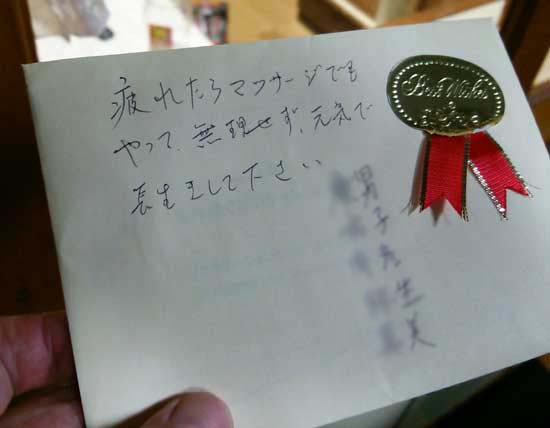 疲れたらマッサージでも
やって、無理せず、元気で
長生きして下さい
Best Wishes
男
子
彦
生
美